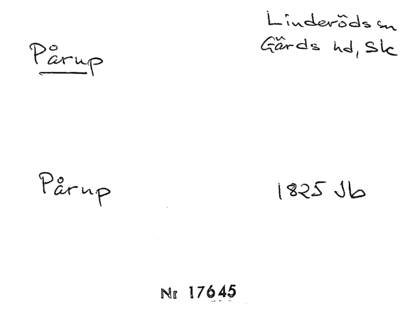 Linderöds sn
Pårup
Gärds hd, Sk
Pårup 1825 Jb
Nr 17645